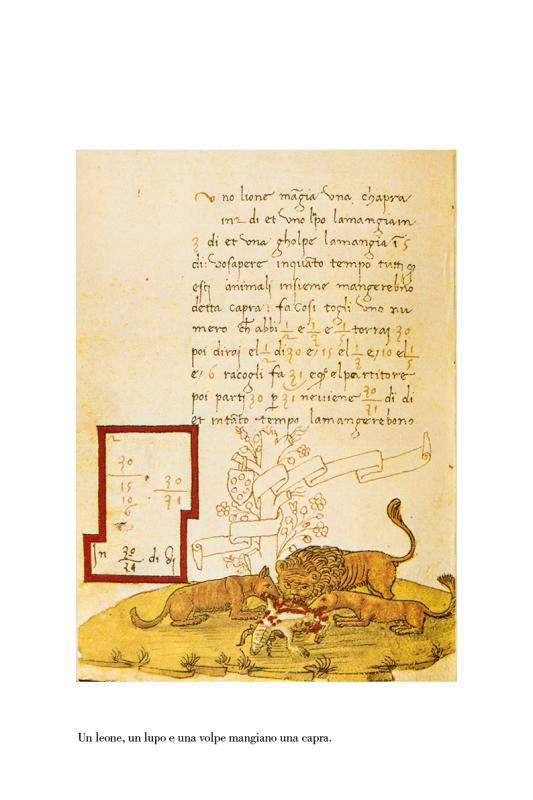 Uno lione māgia una chapra
in 2 di et uno lpo lamangia in
3 di et una gholpe lamangia ī 5
di: vosapere inquāto tempo tutti q
esti animali insieme mangerebno
detta capra: fa cosi togli uno nu
mero ch abbi 1/2 e 1/3 e 1/5 torrai 30
poi dirai el 1/2 di 30 e/ 15 el 1/3 e/ 10 el 1/5
e/ 6 racogli fa 31 el partitore
poi parti 30 p 31 neviene 30/31 di di
et intāto tempo lamangerebono
2
30
15
10
6
30/31
In 30/31 di di
Un leone, un lupo e una volpe mangiano una capra.